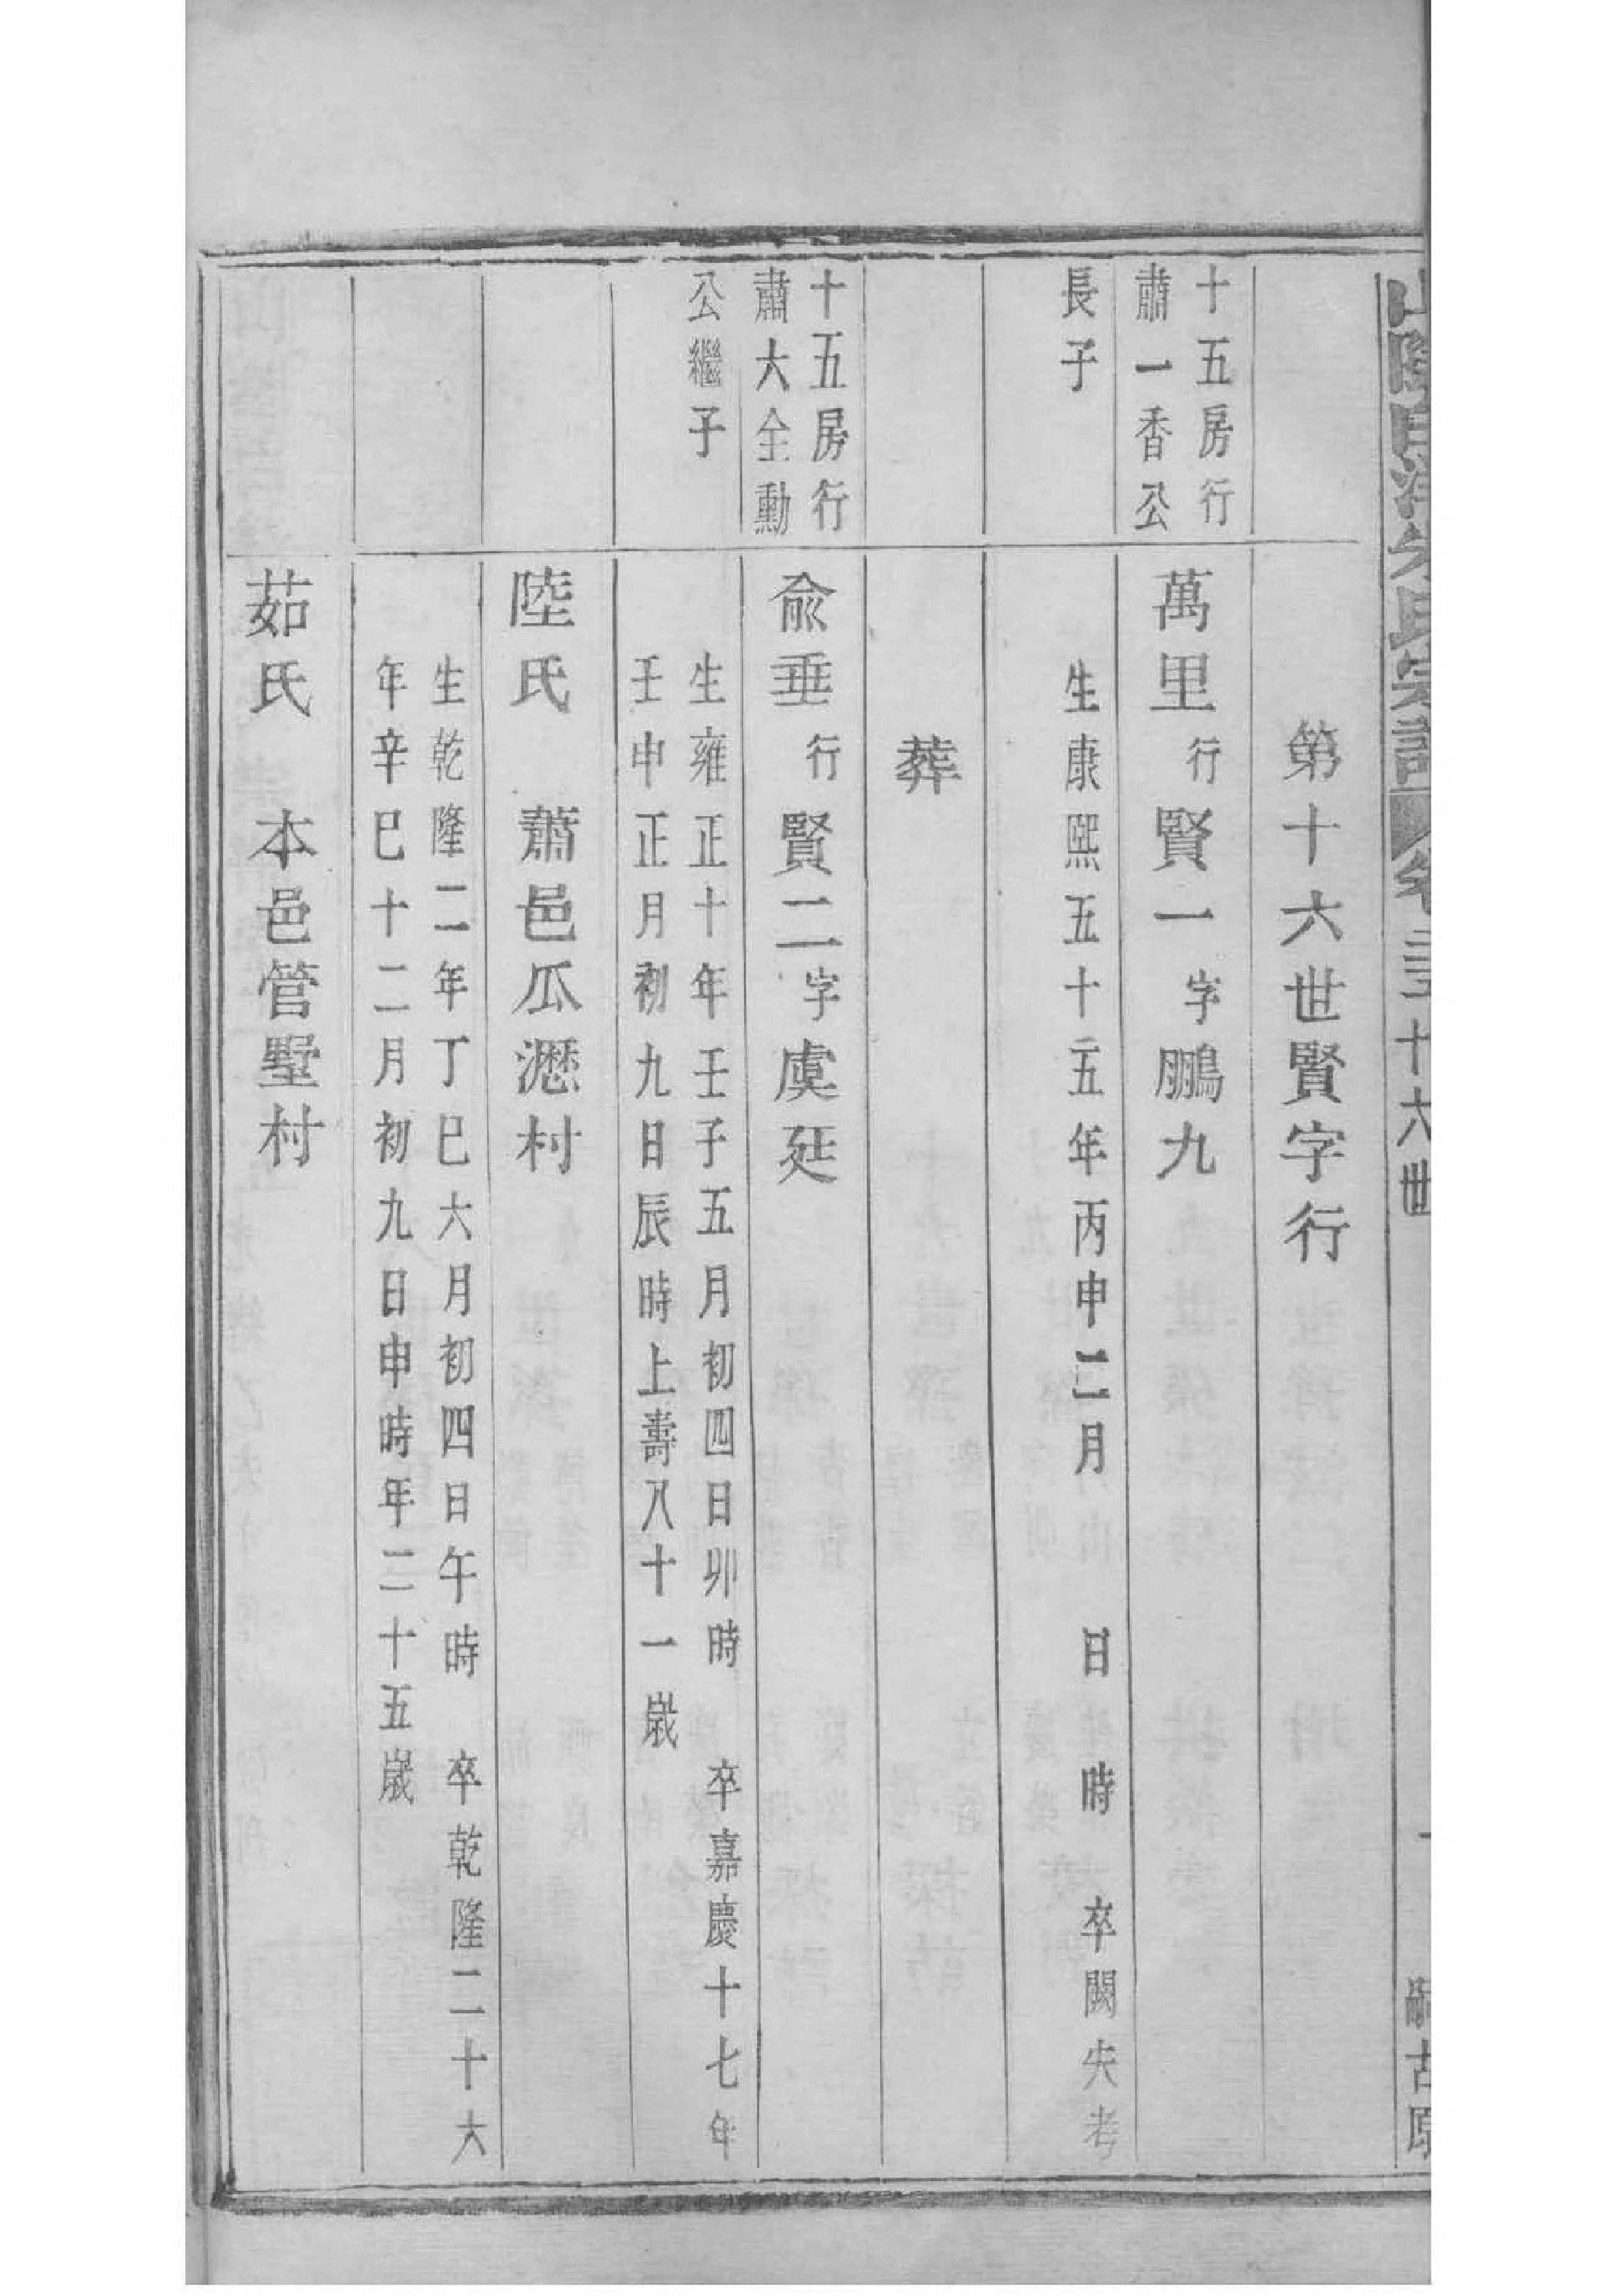 第十六世賢字行
十五房行
肅一香公
長子
萬里行賢一字鵬九
生康熙五十五年丙申二月 日 時 卒闕失考
葬
十五房行
肅大全勳
公繼子
俞垂行賢二字虞延
生雍正十年壬子五月初四日卯時 卒嘉慶十七年
壬申正月初九日辰時上壽八十一歲
陸氏 蕭邑瓜瀝村
生乾隆二年丁巳六月初四日午時 卒乾隆二十六
年辛巳十二月初九日申時年二十五歲
茹氏 本邑管墅村